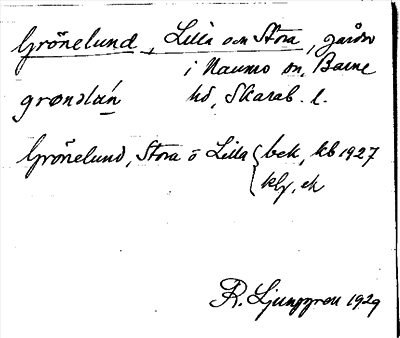 Grönelund, Lilla och Stora, gårdar
i Naums sn, Barne
grøndlún hd, Skarab. l.
Grönelund, Stora o Lilla { bek, kb 1927
klg, ek
R. Ljunggren 1929